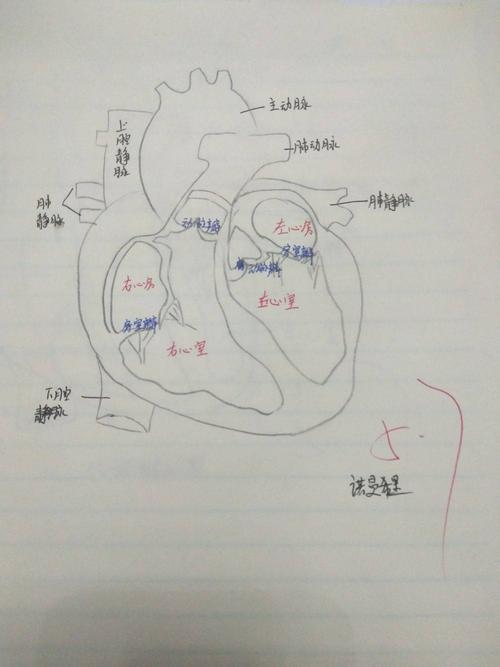 主动脉
上腔静脉
肺动脉
肺静脉
肺静脉
动脉瓣
左心房
房室瓣
动脉瓣
右心房
左心室
房室瓣
右心室
下腔
静脉